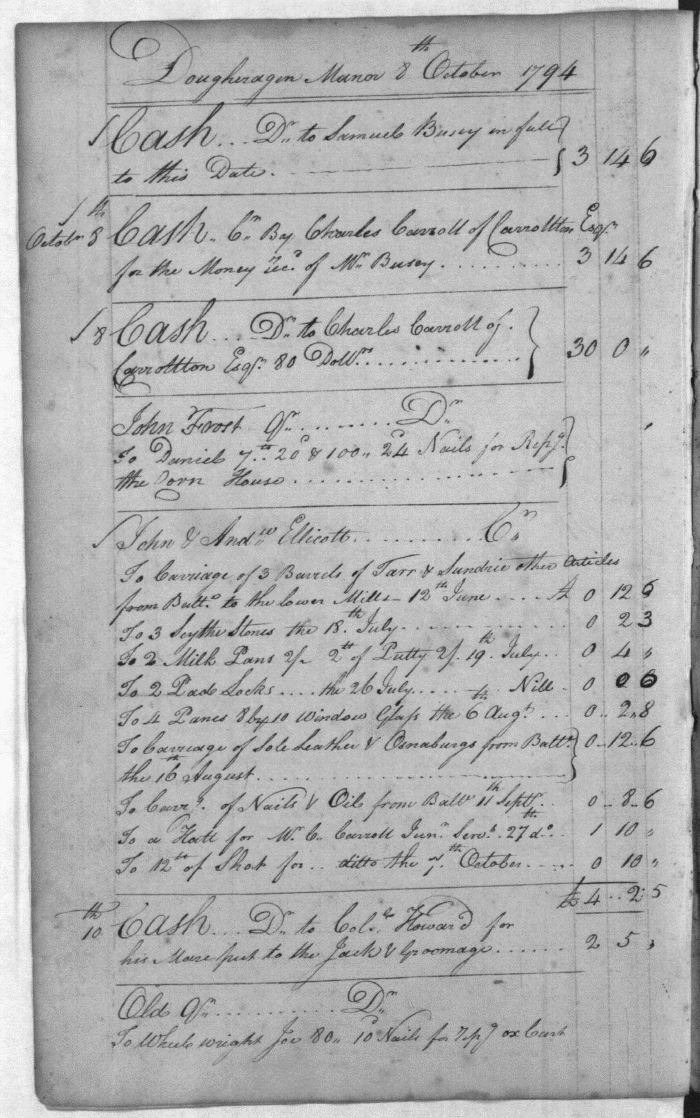 Dougheragen Manor 8th October 1794
Cash... Dr. to Samuel Busey in full
to this Date. 3 14 6
Octobr 8th Cash.. Cr. By Charles Carroll of Carrollton Esqr.
for the Money rec'd. of Mr. Busey 3 14 6
8 Cash... Dr. to Charles Carroll of.
Carrollton Esqr. 80 Dollrs. 30 0 "
John Frost Qr. Dr.
To Daniel 7th 20d & 100" 24 Nails for Repg.
the Corn House
John & Andw. Ellicott Cr.
To Carriage of 3 Barrels of Tarr & Sundrie other Articles
from Balto. to the lower Mills - 12th June 0 12 6
To 3 Scythe Stones the 18th July 0 2 3
To 2 Milk Pans 2/- 2lb of Putty 2/. 19th July 0 4 "
To 2 Pad Locks.... the 26 July Nill 0 0 6
To 4 Panes 8 by 10 Window Glass the 6th Augt. 0 2"8
To Carriage of Sole Leather & Osnaburgs from Balto. 0 12 6
the 16th August
To Carrg. of Nails & Oil from Balto 11th Septr. 0 8 6
To a Hatt for Mr. C. Carroll Junr. Servt. 27th do. 1 10 "
To 12lb of Shot for.. ditto the 7th October 0 10 "
£ 4 2 5
10th Cash... Dr. to Colo. Howard for
his Mare put to the Jack & Groomage 2 5 "
Old Qr. Dr.
To Wheelwright Joe 80" 10d Nails for repg ox Cart